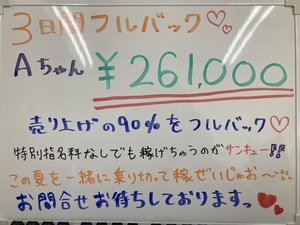 3日間フルバック♡
Aちゃん ¥261,000
売り上げの90%をフルバック♡
特別指名料なしでも稼げちゃうのがサンキュー!!
この夏を一緒に乗り切って稼ぜいじゃお〜
お問合せお待ちしておりますっ